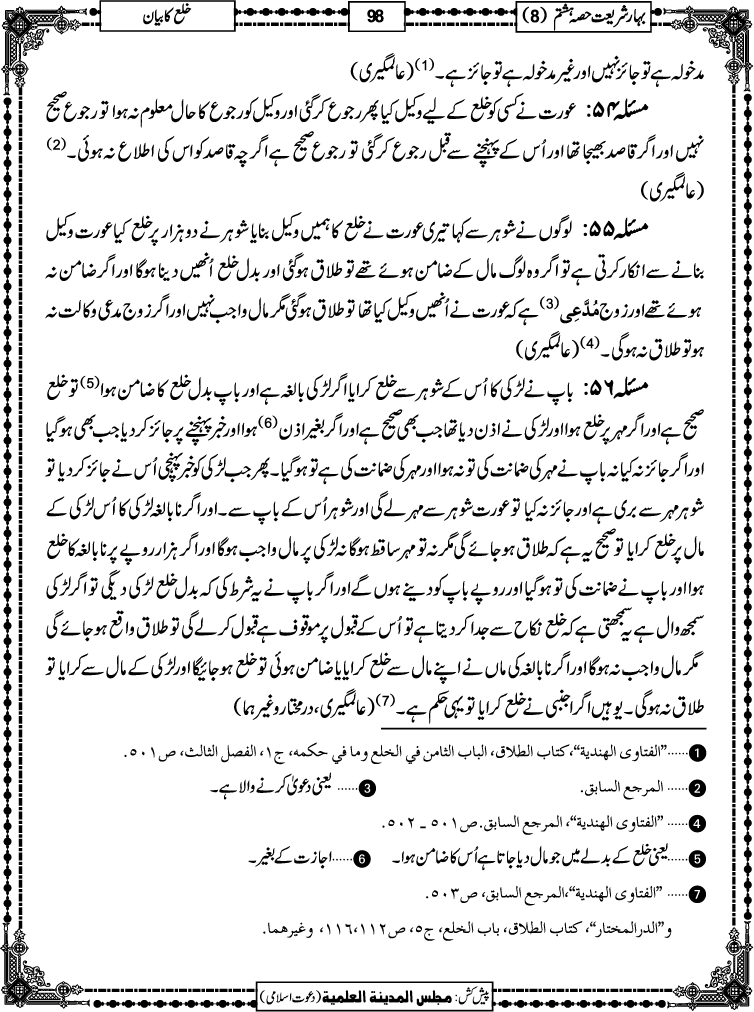 بہارِ شریعت حصہ ہشتم (8)
98
خلع کا بیان
مدخولہ ہے تو جائز نہیں اور غیر مدخولہ ہے تو جائز ہے۔(1) (عالمگیری)
مسئلہ ۵۴: عورت نے کسی کو خلع کے لیے وکیل کیا پھر رجوع کرگئی اور وکیل کو رجوع کا حال معلوم نہ ہوا تو رجوع صحیح
نہیں اور اگر قاصد بھیجا تھا اور اُس کے پہنچنے سے قبل رجوع کرگئی تو رجوع صحیح ہے اگرچہ قاصد کو اس کی اطلاع نہ ہوئی۔(2)
(عالمگیری)
مسئلہ ۵۵: لوگوں نے شوہر سے کہا تیری عورت نے خلع کا ہمیں وکیل بنایا شوہر نے دو ہزار پر خلع کیا عورت وکیل
بنانے سے انکار کرتی ہے تو اگر وہ لوگ مال کے ضامن ہوئے تھے تو طلاق ہوگئی اور بدل خلع اُنھیں دینا ہوگا اور اگر ضامن نہ
ہوئے تھے اور زوج مُدَّعِی(3) ہے کہ عورت نے اُنھیں وکیل کیا تھا تو طلاق ہوگئی مگر مال واجب نہیں اور اگر زوج مدعی وکالت نہ
ہو تو طلاق نہ ہوگی۔(4) (عالمگیری)
مسئلہ ۵۶: باپ نے لڑکی کا اُس کے شوہر سے خلع کرایا اگر لڑکی بالغہ ہے اور باپ بدل خلع کا ضامن ہوا(5) تو خلع
صحیح ہے اور اگر مہر پر خلع ہوا اور لڑکی نے اذن دیا تھا جب بھی صحیح ہے اور اگر بغیر اذن(6) ہوا اور خبر پہنچنے پر جائز کر دیا جب بھی ہوگیا
اور اگر جائز نہ کیا نہ باپ نے مہر کی ضمانت کی تو نہ ہوا اور مہر کی ضمانت کی ہے تو ہوگیا۔ پھر جب لڑکی کو خبر پہنچی اُس نے جائز کر دیا تو
شوہر مہر سے بری ہے اور جائز نہ کیا تو عورت شوہر سے مہر لے گی اور شوہر اُس کے باپ سے۔ اور اگر نابالغہ لڑکی کا اُس لڑکی کے
مال پر خلع کرایا تو صحیح یہ ہے کہ طلاق ہو جائے گی مگر نہ تو مہر ساقط ہوگا نہ لڑکی پر مال واجب ہوگا اور اگر ہزار روپے پر نابالغہ کا خلع
ہوا اور باپ نے ضمانت کی تو ہوگیا اور روپے باپ کو دینے ہوں گے اور اگر باپ نے یہ شرط کی کہ بدل خلع لڑکی دیگی تو اگر لڑکی
سمجھ وال ہے یہ سمجھتی ہے کہ خلع نکاح سے جدا کر دیتا ہے تو اُس کے قبول پر موقوف ہے قبول کر لے گی تو طلاق واقع ہو جائے گی
مگر مال واجب نہ ہوگا اور اگر نابالغہ کی ماں نے اپنے مال سے خلع کرایا یا ضامن ہوئی تو خلع ہو جائیگا اور لڑکی کے مال سے کرایا تو
طلاق نہ ہوگی۔ یوہیں اگر اجنبی نے خلع کرایا تو یہی حکم ہے۔(7) (عالمگیری، درمختار وغیرہما)
1 ......”الفتاوی الهندية“، كتاب الطلاق، الباب الثامن في الخلع وما في حكمه، ج١، الفصل الثالث، ص٥٠١.
2 ...... المرجع السابق.
3 ...... یعنی دعویٰ کرنے والا ہے۔
4 ...... ”الفتاوی الهندية“، المرجع السابق.ص٥٠١ ـ ٥٠٢.
5 ......یعنی خلع کے بدلے میں جو مال دیا جاتا ہے اُس کا ضامن ہوا۔
6 ......اجازت کے بغیر۔
7 ...... ”الفتاوی الهندية“،المرجع السابق، ص٥٠٣.
و”الدرالمختار“، كتاب الطلاق، باب الخلع، ج٥، ص١١٢،١١٦، وغيرهما.
پیش کش: مجلس المدینة العلمیة (دعوت اسلامی)